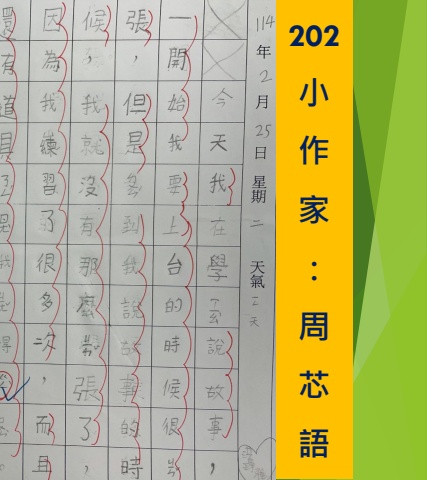 202小作家：周芯語
114年2月25日 星期二 天氣
今天我在學說故事，
一開始我要上台的時候很
張，但是到我說故事的時
候，我就沒有那麼張了，
因為我練習了很多次，而且
還有道具